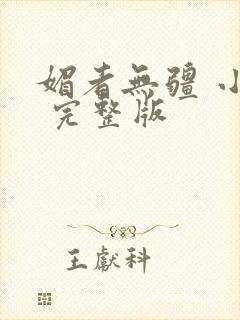 媚者無疆 小
完整版
王獻科